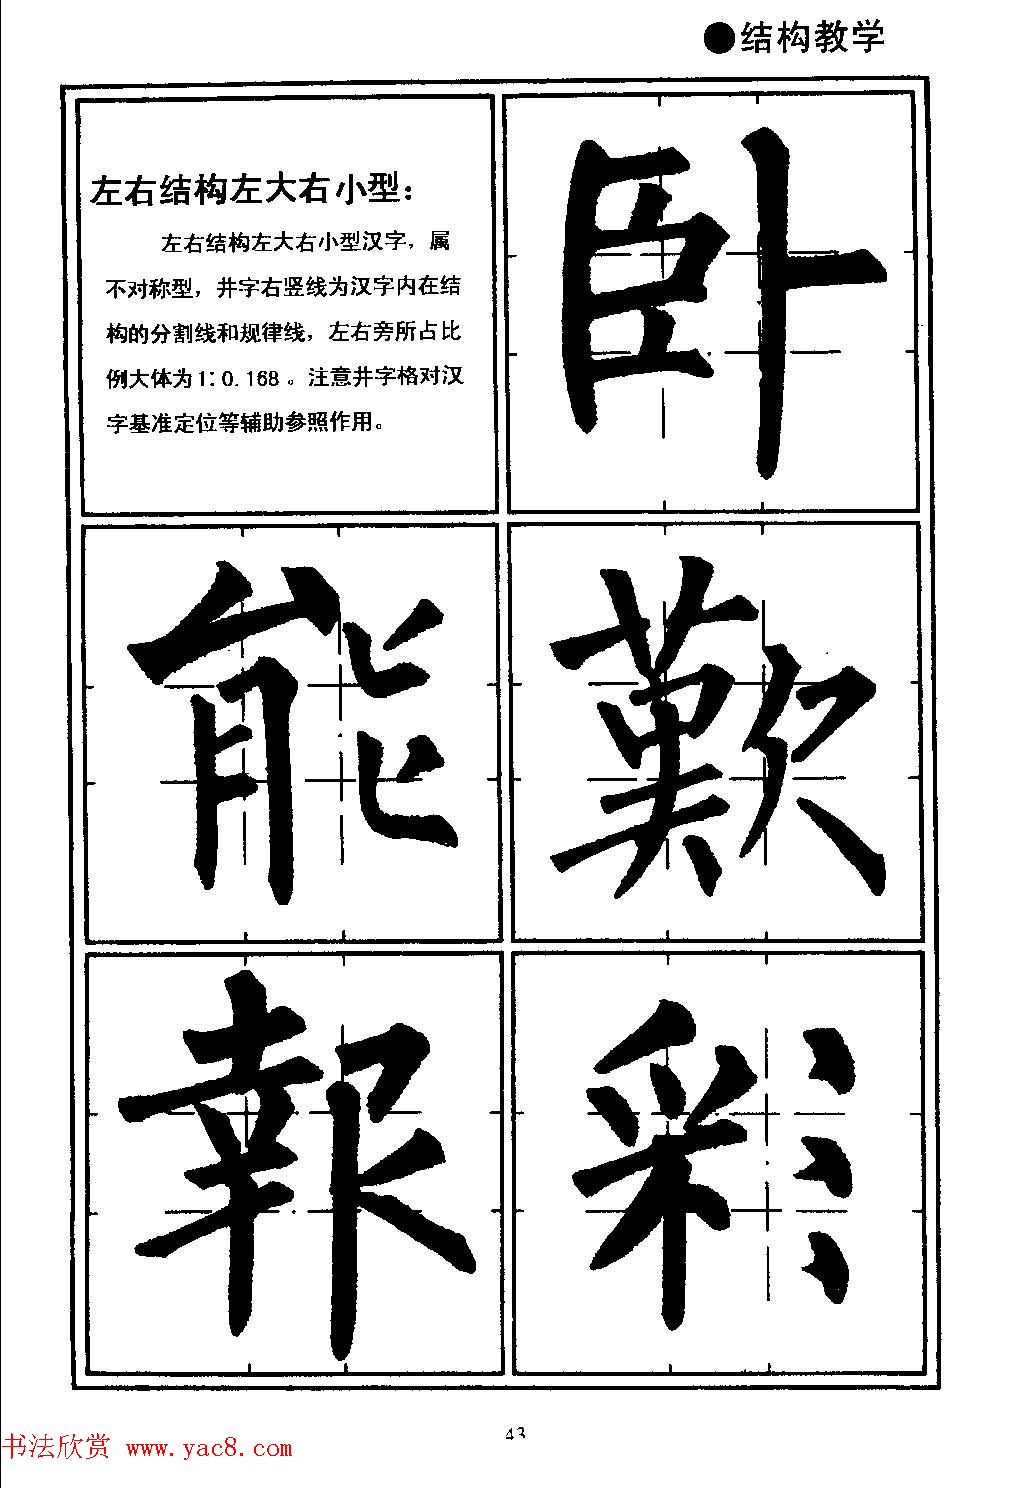 ●结构教学
左右结构左大右小型：
左右结构左大右小型汉字，属
不对称型，井字右竖线为汉字内在结
构的分割线和规律线，左右旁所占比
例大体为1：0.168。注意井字格对汉
字基准定位等辅助参照作用。
卧
能 歎
報 彩
43
书法欣赏 www.yac8.com